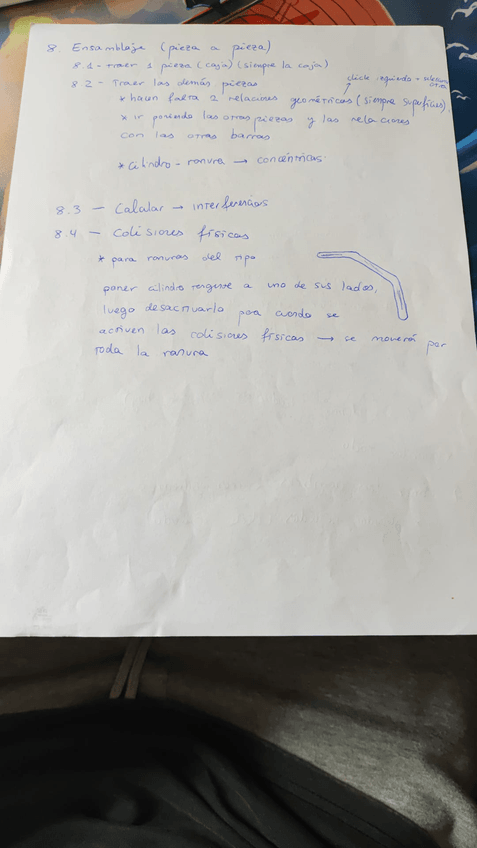 8. Ensamblaje (pieza a pieza)
8.1 - traer 1 pieza (caja) (siempre la caja)
8.2 - Traer las demás piezas
click izquierdo - selecciona otra
* hacen falta 2 relaciones geométricas (siempre superficies)
* ir poniendo las otras piezas y las relaciones
con las otras barras
* cilindro - ranura → concéntricas
8.3 - Calcular → interferencias
8.4 - Colisiones físicas
* para ranuras del tipo
poner cilindro tangente a uno de sus lados,
luego desactivarlo para cuando se
activen las colisiones físicas → se moverá por
toda la ranura